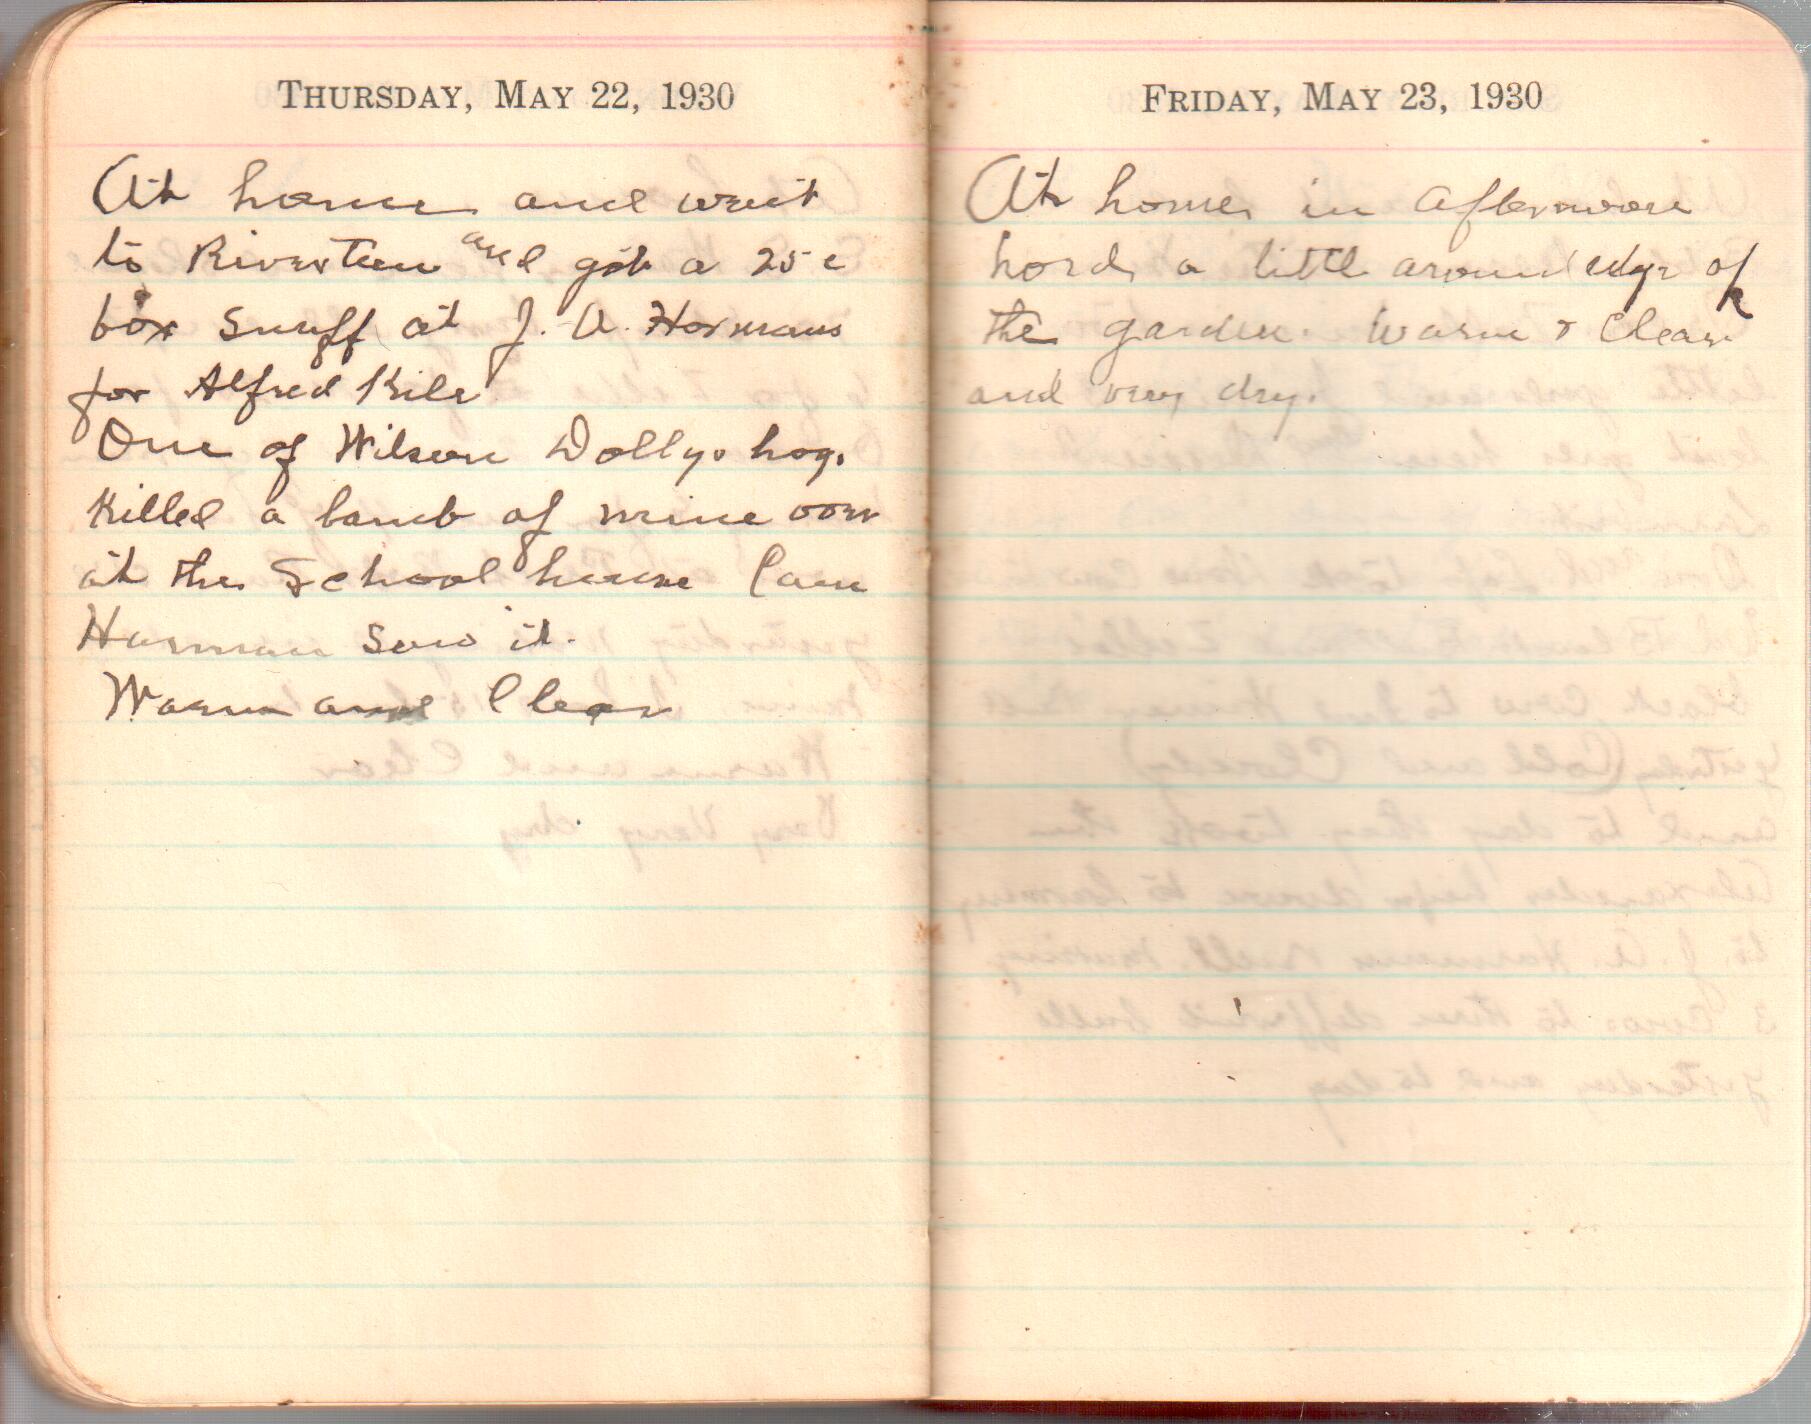 THURSDAY, MAY 22, 1930
At home and went
to Riverton and got a 25 c
box snuff at J. A. Harmans
for Alfred Kile
One of Wilson Dollys hogs
killed a lamb of mine over
at the School house Cam
Harman saw it.
Warm and Clear
FRIDAY, MAY 23, 1930
At home, in afternoon
hoed a little around edge of
the garden. Warm & Clear
and very dry.